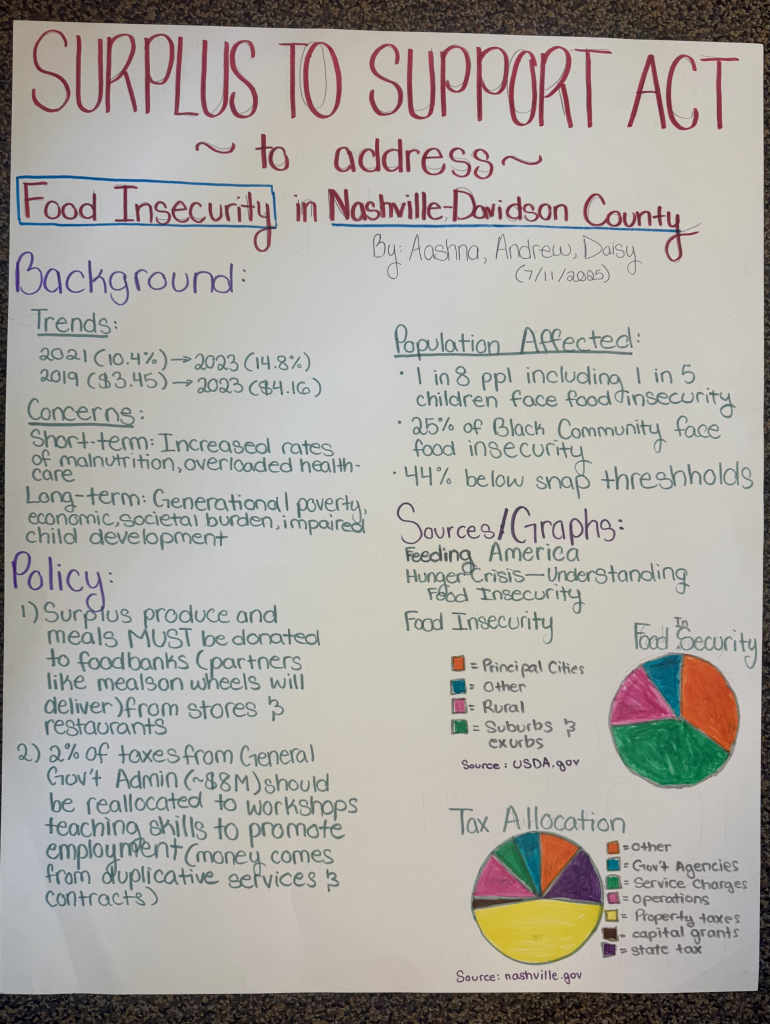 SURPLUS TO SUPPORT ACT
~ to address ~
Food Insecurity in Nashville-Davidson County
By: Aashna, Andrew, Daisy
(7/11/2025)
Background:
Trends:
2021 (10.4%) → 2023 (14.8%)
2019 ($3.45) → 2023 ($4.16)
Concerns:
Short-term: Increased rates
of malnutrition, overloaded health-
care
Long-term: Generational poverty,
economic, societal burden, impaired
child development
Policy:
1) Surplus produce and
meals MUST be donated
to foodbanks (partners
like mealson wheels will
deliver) from stores &
restaurants
2) 2% of taxes from General
Gov't Admin (~$8M) should
be reallocated to workshops
teaching skills to promote
employment (money comes
from duplicative services &
contracts)
Population Affected:
• 1 in 8 ppl including 1 in 5
children face food insecurity
• 25% of Black Community face
food insecurity
• 44% below snap threshholds
Sources/Graphs:
Feeding America
Hunger Crisis—Understanding
Food Insecurity
Food Insecurity
Food InSecurity
= Principal Cities
= Other
= Rural
= Suburbs &
exurbs
Source: USDA.gov
Tax Allocation
= Other
= Gov't Agencies
= Service Charges
= Operations
= Property taxes
= capital grants
= state tax
Source: nashville.gov